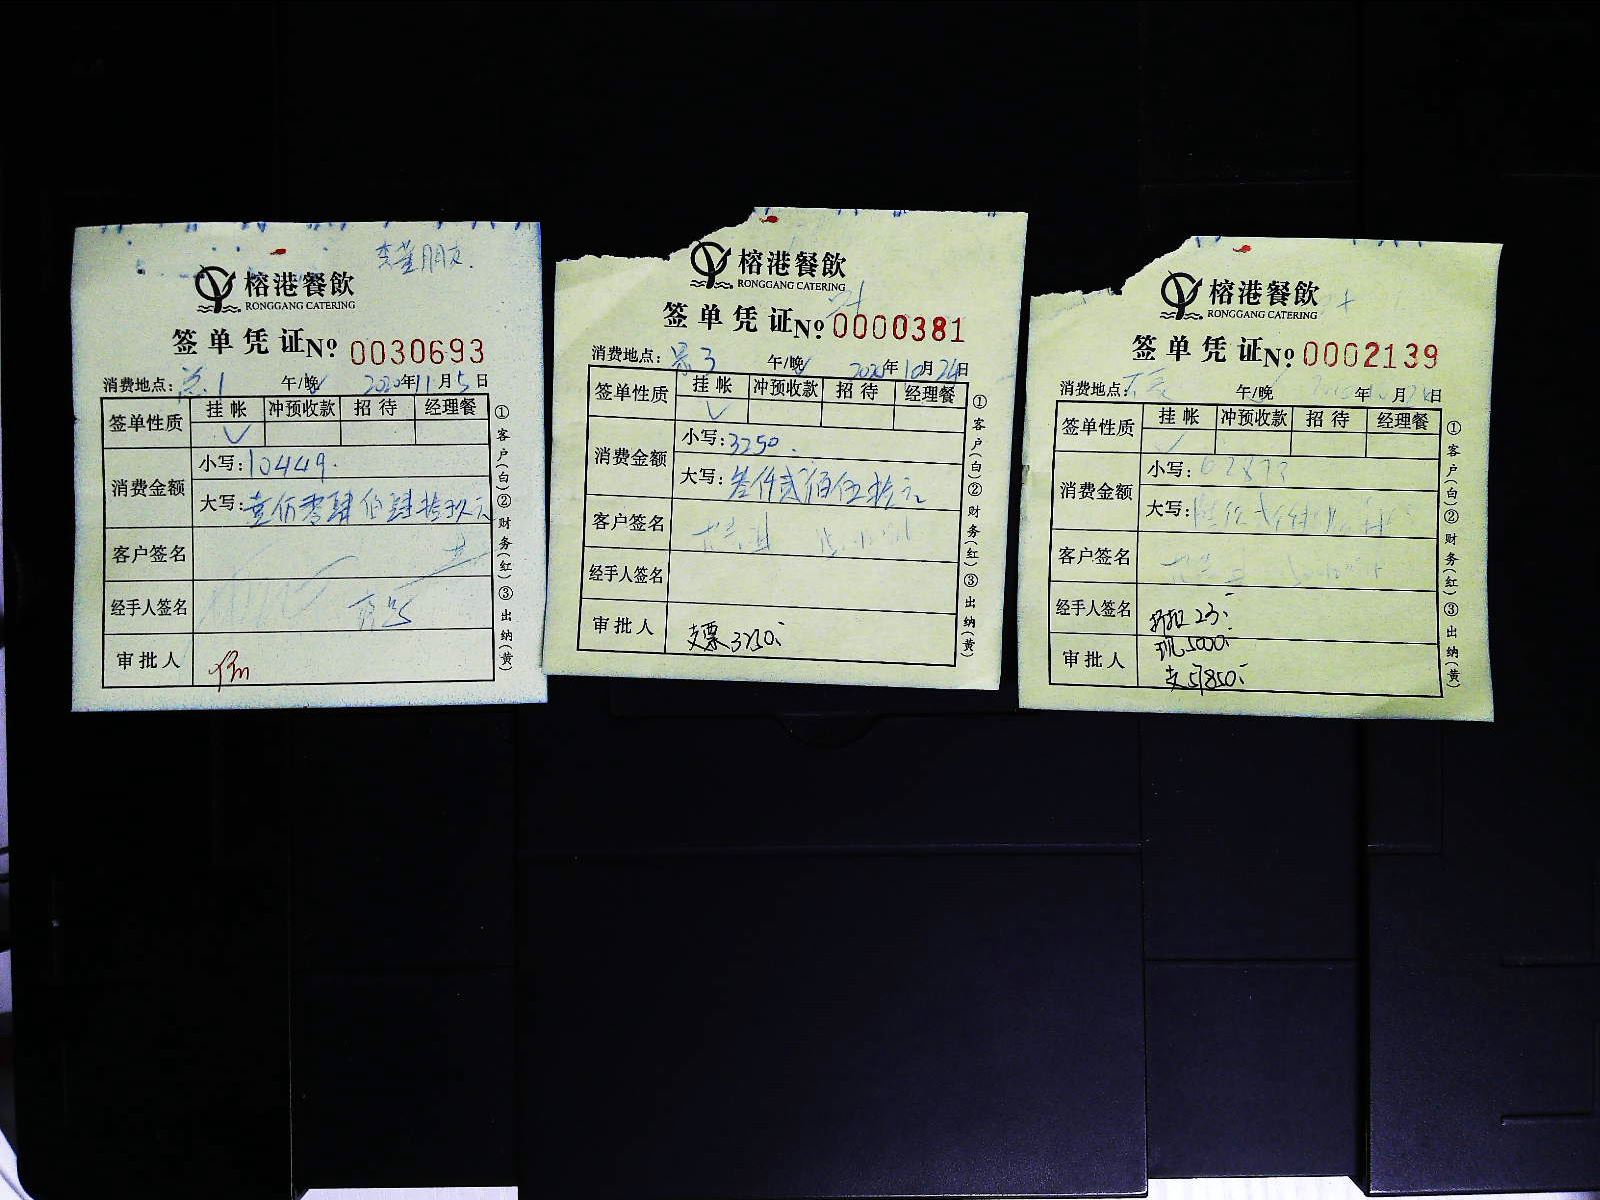 李董朋友.
榕港餐飲
RONGGANG CATERING
签单凭证 No 0030693
消费地点: 午/晚 2020年11月5日
签单性质 挂帐 冲预收款 招待 经理餐
✓
消费金额 小写: 10449.
大写: 肆佰肆拾玖元
客户签名
经手人签名
审批人
①客户(白)②财务(红)③出纳(黄)
榕港餐飲
RONGGANG CATERING
签单凭证 No 0000381
消费地点: 午/晚 2020年10月24日
签单性质 挂帐 冲预收款 招待 经理餐
✓
消费金额 小写: 3250.
大写: 叁仟贰佰伍拾元
客户签名
经手人签名
审批人 支票3250
①客户(白)②财务(红)③出纳(黄)
榕港餐飲
RONGGANG CATERING
签单凭证 No 0002139
消费地点: 午/晚 年 月24日
签单性质 挂帐 冲预收款 招待 经理餐
消费金额 小写: 62873
大写:
客户签名
经手人签名 折扣23
审批人 现5000
支57850
①客户(白)②财务(红)③出纳(黄)